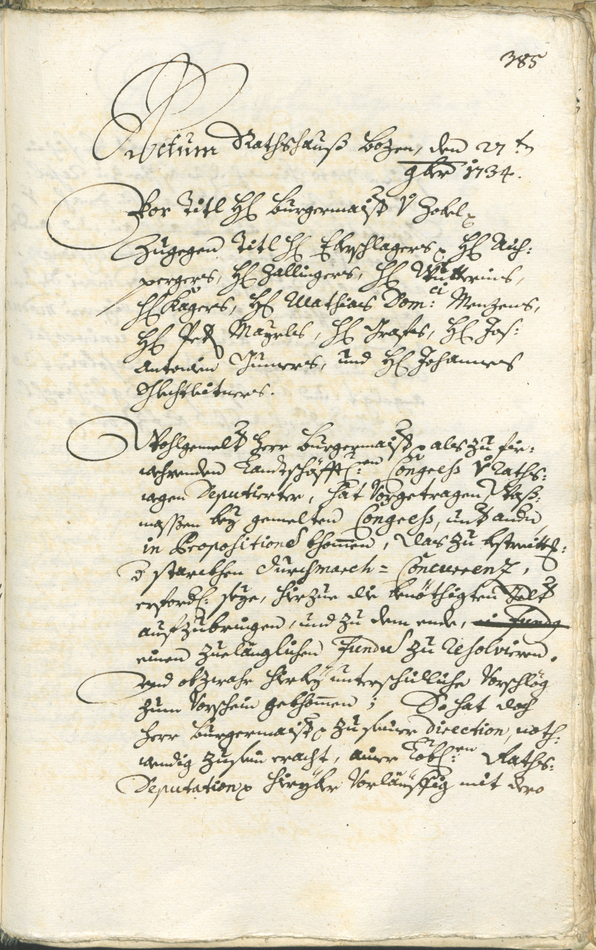 385
Actum Rathshauß Bozen, den 27 t
9ber 1734.
Vor Titl H: Burgermaist: V Zobel
Zugegen Titl H: Eberschlagers, H: Auf:
pergers, H: Zallingers, H:
H: Kagers, H: Mathias Dom:ci Menzens,
H: Pet: Mayrls, H: Grafes, H: Jos:
Antonien Gumers, und H: Johannes
Hechtleitners.
Wohlgemelt Herr Burgermaist: als zu für:
wehrenden Landtschäfft:en Congreß V Raths:
wegen Deputierter, hat Vorgetragen, waß:
massen bey gemelten Congreß, und
in Propositione khomen, das zu bestreitt:
d starckhen Durchmarch= Concurrenz,
erfordl: seye, hierzue die benöthigten Gelt
aufzubringen, und zu dem ende,
einen Zuelänglichen Fundu zu resolvieren.
und obzwahr hierbey unterschidliche Vorschlög
zum Vorschein gekhomen; So hat doch
Herr Burgermaist: zu seiner direction, noth:
wendig zu sein eracht, ainer Löbl:en Raths:
Deputation hieryber Vorläuffig mit dero